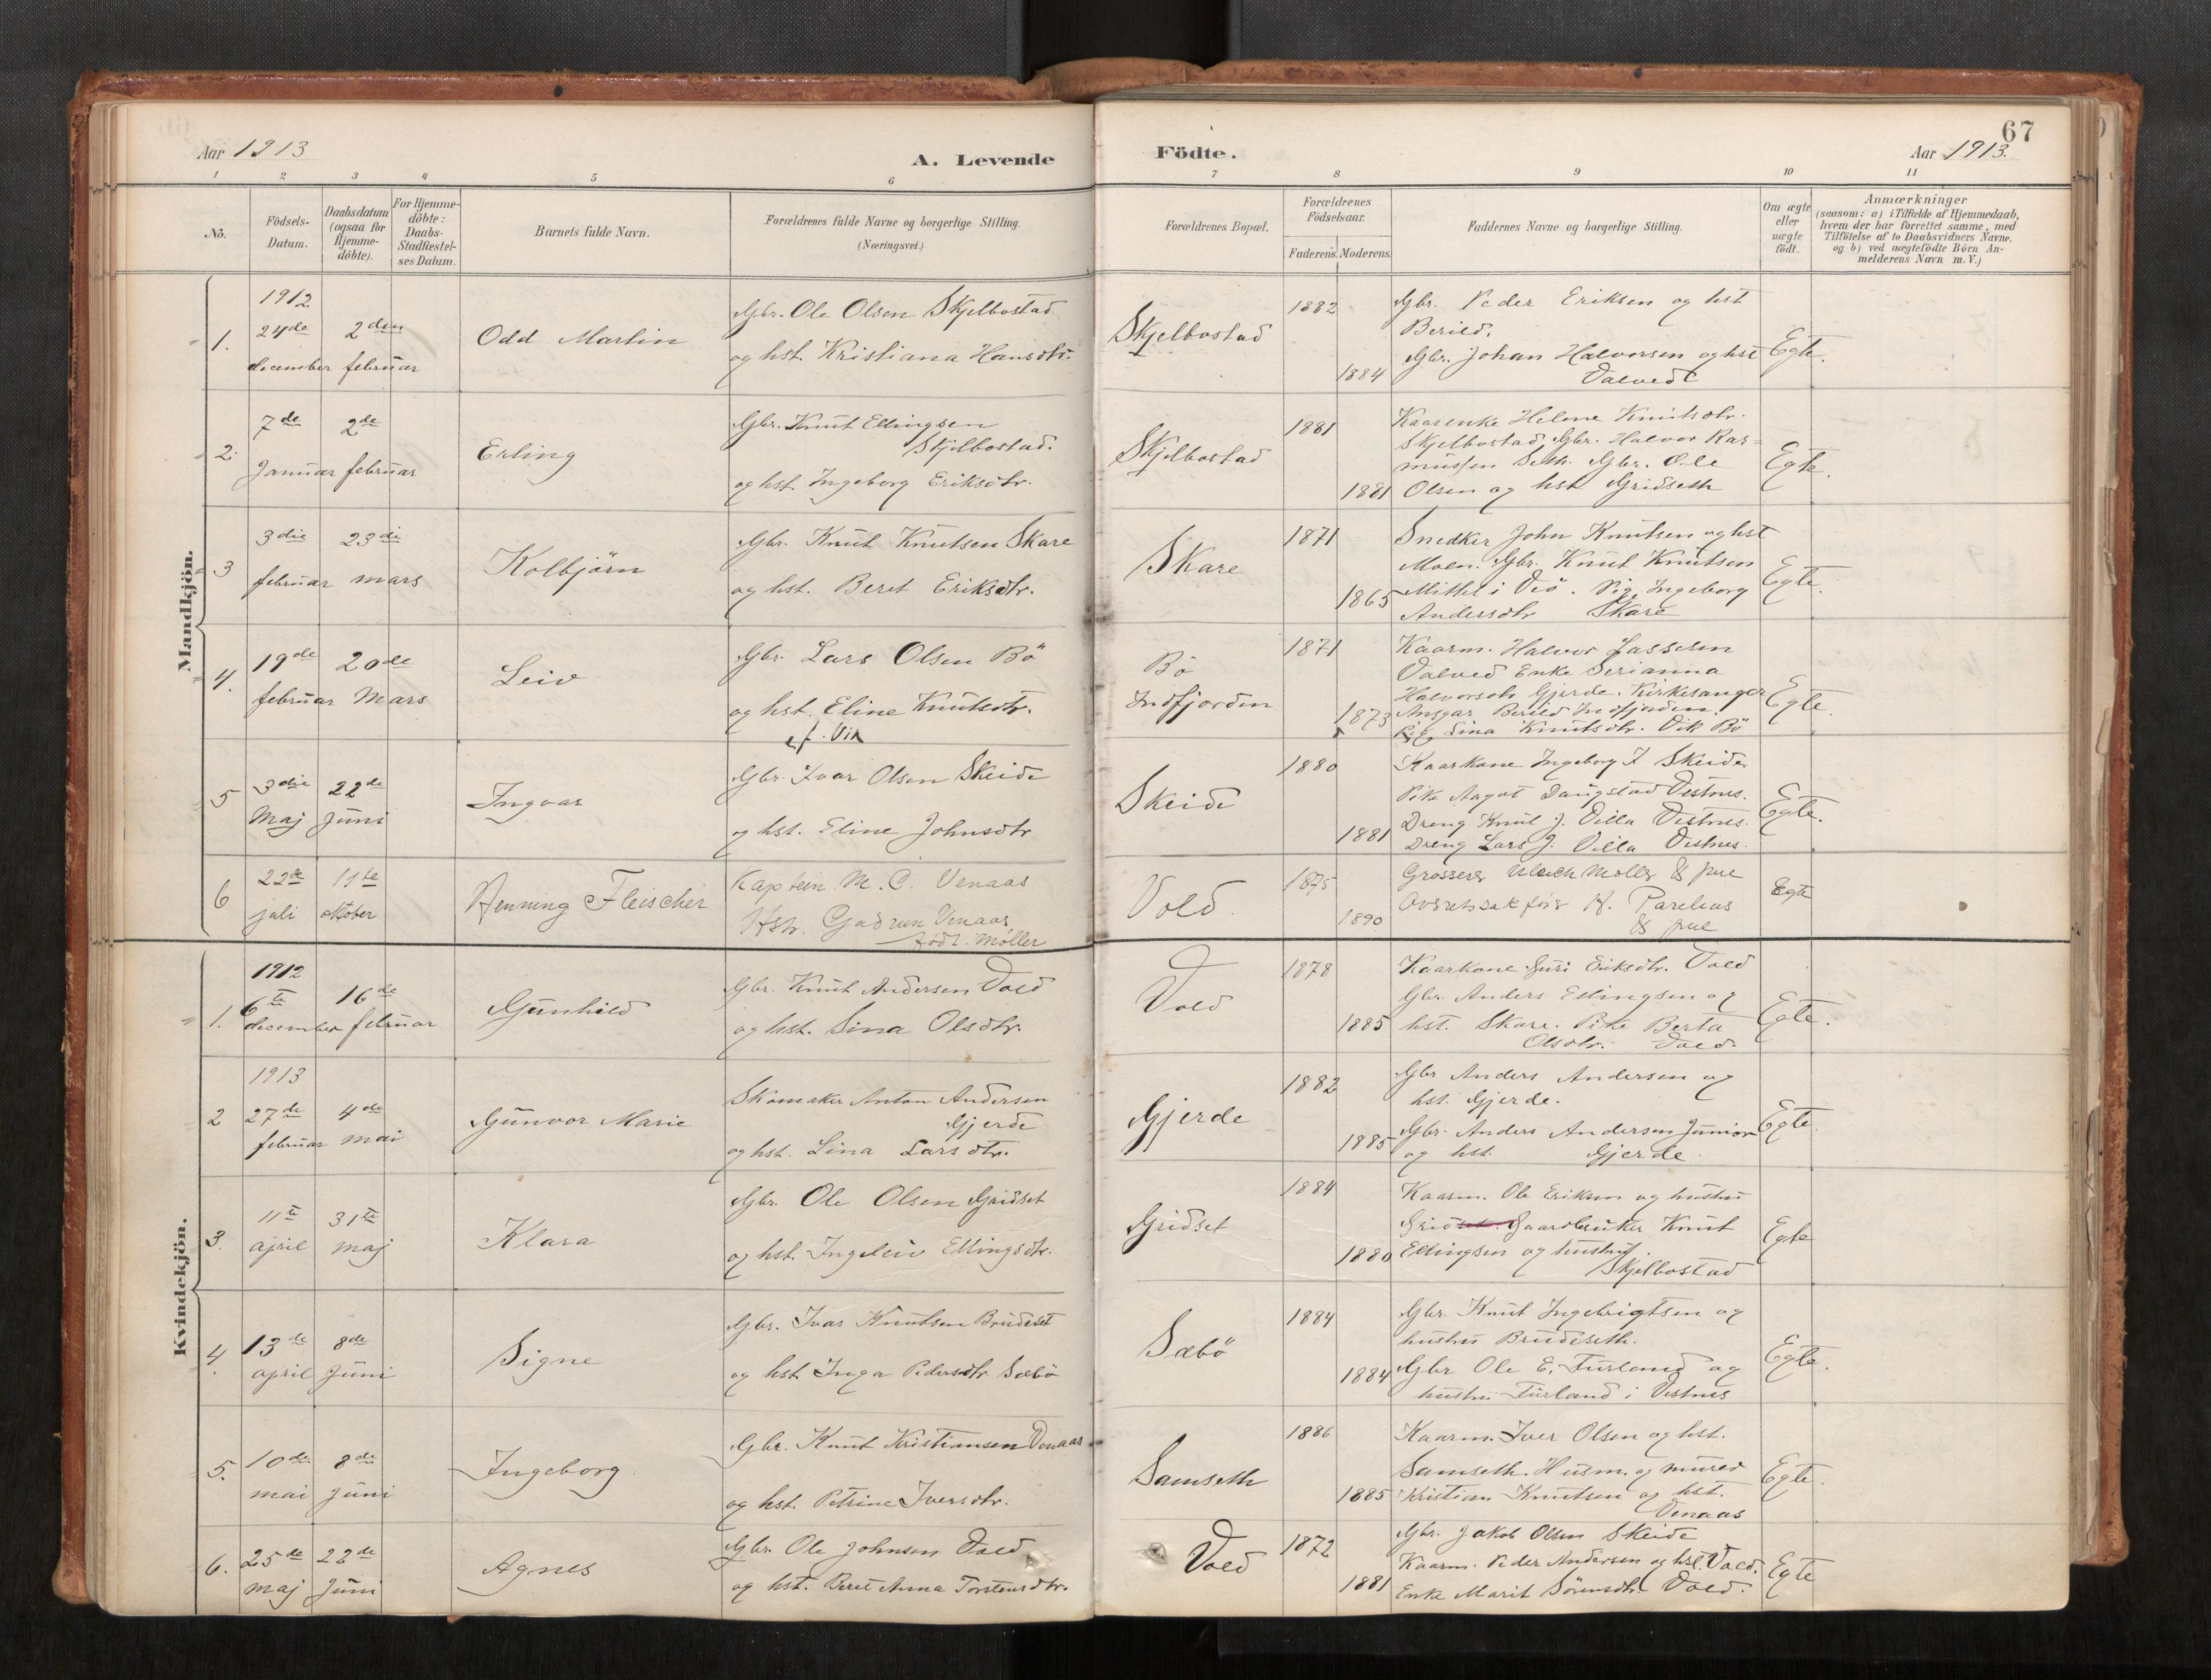 67
Aar 1913
A. Levende
Födte.
Aar 1913.
1 2 3 4 5 6 7 8 9 10 11
No.
Födsels-
Datum.
Daabsdatum
(ogsaa for
Hjemme-
döbte).
For Hjemme-
döbte:
Daabs-
Stadfæstel-
ses Datum.
Barnets fulde Navn.
Forældrenes fulde Navne og borgerlige Stilling.
(Næringsvei.)
Forældrenes Bopæl.
Forældrenes
Födselsaar.
Faderens. Moderens.
Faddernes Navne og borgerlige Stilling.
Om ægte
eller
uægte
födt.
Anmærkninger
(saasom: a) i Tilfælde af Hjemmedaab,
hvem der har forrettet samme, med
Tilföielse af to Daabsvidners Navne,
og b) ved uægtefödte Börn An-
melderens Navn m. V.)
Mandkjön.
1.
1912
24de
december
2den
februar
Odd Martin
Gbr. Ole Olsen Skjelbostad
og hst. Kristiana Hansdtr.
Skjelbostad
1882
1884
Gbr. Peder Eriksen og hst
Berild.
Gbr. Johan Halvorsen og hst
Valved
Egte.
2.
7de
Januar
2de
februar
Erling
Gbr. Knut Ellingsen
Skjelbostad.
og hst. Ingeborg Eriksdtr.
Skjelbostad
1881
1881
Kaarenke Helene Knutsdtr.
Skjelbostad, Gbr. Halvor Ras-
mussen Seth. Gbr. Ole
Olsen og hst Gridseth
Egte.
3
3die
februar
23di
mars
Kolbjörn
Gbr. Knut Knutsen Skare
og hst. Beret Eriksdtr.
Skare
1871
1865
Snedker John Knutsen og hst
Moen. Gbr. Knut Knutsen
Mittet i Veö. Pige Ingeborg
Andersdtr Skare
Egte.
4.
19de
februar
20de
Mars
Leiv
Gbr. Lars Olsen Bö
og hst. Eline Knutsdtr.
f. Vik
Bö
Indfjorden
1871
1873
Kaarm. Halvor Lassesen
Valved Enke Serianna
Halvorsdtr Gjerde. Kirkesanger
Ansgar Berild Indfjorden.
Lina Knutsdtr. Vik Bö
Egte.
5
3die
Maj
22de
Juni
Ingvar
Gbr. Ivar Olsen Skeide
og hst. Eline Johnsdtr
Skeide
1880
1881
Kaarkone Ingeborg I Skeide
Pike Aagot Daugstad Vestnes.
Dreng Knut J. Villa Vestnes.
Dreng Lars J. Villa Vestnes.
Egte.
6
22de
juli
11te
oktober
Henning Fleischer
Kaptein M. C. Venaas
Hstr. Gudrun Venaas
født Møller
Vold.
1875
1890
Grosserer Ulrich Møller & frue
Ovsretssakfører H. Parelius
& frue
Egte
Kvindekjön.
1.
1912
6te
december
16de
februar
Gunhild
Gbr. Knut Andersen Vold
og hst. Sina Olsdtr.
Vold
1878
1885
Kaarkone Guri Eriksdtr. Vold
Gbr. Anders Ellingsen og
hst. Skare. Pike Berta
Olsdtr. Vold.
Egte.
2
1913
27de
februar
4de
mai
Gunvor Marie
Skomaker Anton Andersen
Gjerde
og hst. Lina Larsdtr.
Gjerde
1882
1885
Gbr Anders Andersen og
hst. Gjerde.
Gbr. Anders Andersen Junior
og hst. Gjerde.
Egte
3.
11te
april
31te
maj
Klara
Gbr. Ole Olsen Gridset
og hst. Ingeleiv Ellingsdtr.
Gridset
1884
1880
Kaarm. Ole Eriksen og hustru
Gridset Gaardbruker Knut
Ellingsen og hustru
Skjelbostad
Egte
4.
13de
april
8de
Juni
Signe
Gbr. Ivar Knutsen Brudeset
og hst Inga Pedersdtr Sæbö
Sæbö
1884
1884
Gbr. Knut Ingebrigtsen og
hustru Brudeseth.
Gbr Ole E. Furland og
hustru Furland i Vestnes
Egte.
5.
10de
mai
8de
Juni
Ingeborg
Gbr. Knut Kristiansen Venaas
og hst. Petrine Iversdtr.
Samseth
1886
1885
Kaarm. Iver Olsen og hst.
Samseth. Husm. og murer
Kristian Knutsen og hst.
Venaas
Egte.
6.
25de
maj
22de
Juni
Agnes
Gbr. Ole Johnsen Vold
og hst. Beret Anna Torstensdtr.
Vold
1872
1881
Gbr. Jakob Olsen Skeide
Kaarm. Peder Andersen og hst. Vold.
Enke Marit Sörensdtr. Vold.
Egte